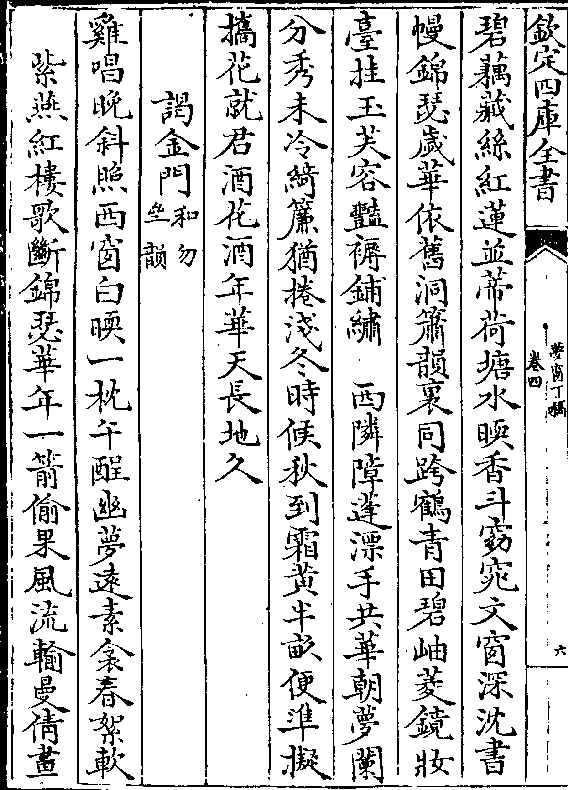 欽定四庫全書
夢窗丁稿
卷四
六
碧藕藏絲紅蓮並蒂荷塘水暎香斗窈窕文窗深沈書
幔錦瑟歲華依舊洞簫韻裏同跨鶴青田碧岫菱鏡妝
臺挂玉芙容豔褥鋪繡　西隣障蓬漂手共華朝夢闌
分秀未冷綺簾猶捲淺冬時候秋到霜黄半畝便準擬
攜花就君酒花酒年華天長地久
謁金門和勿
坐韻
雞唱晚斜照西窗白暎一枕午酲幽夢遠素衾春絮軟
紫燕紅樓歌斷錦瑟華年一箭偷果風流輸曼倩畫